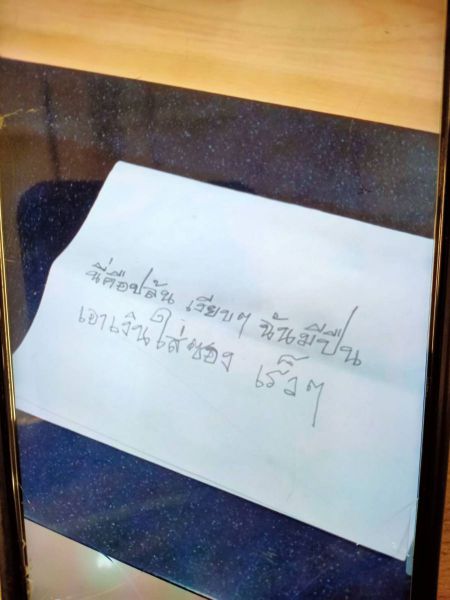 นี่คือปล้น เงียบๆ ฉันมีปืน
เอาเงินใส่ซอง เร็วๆ